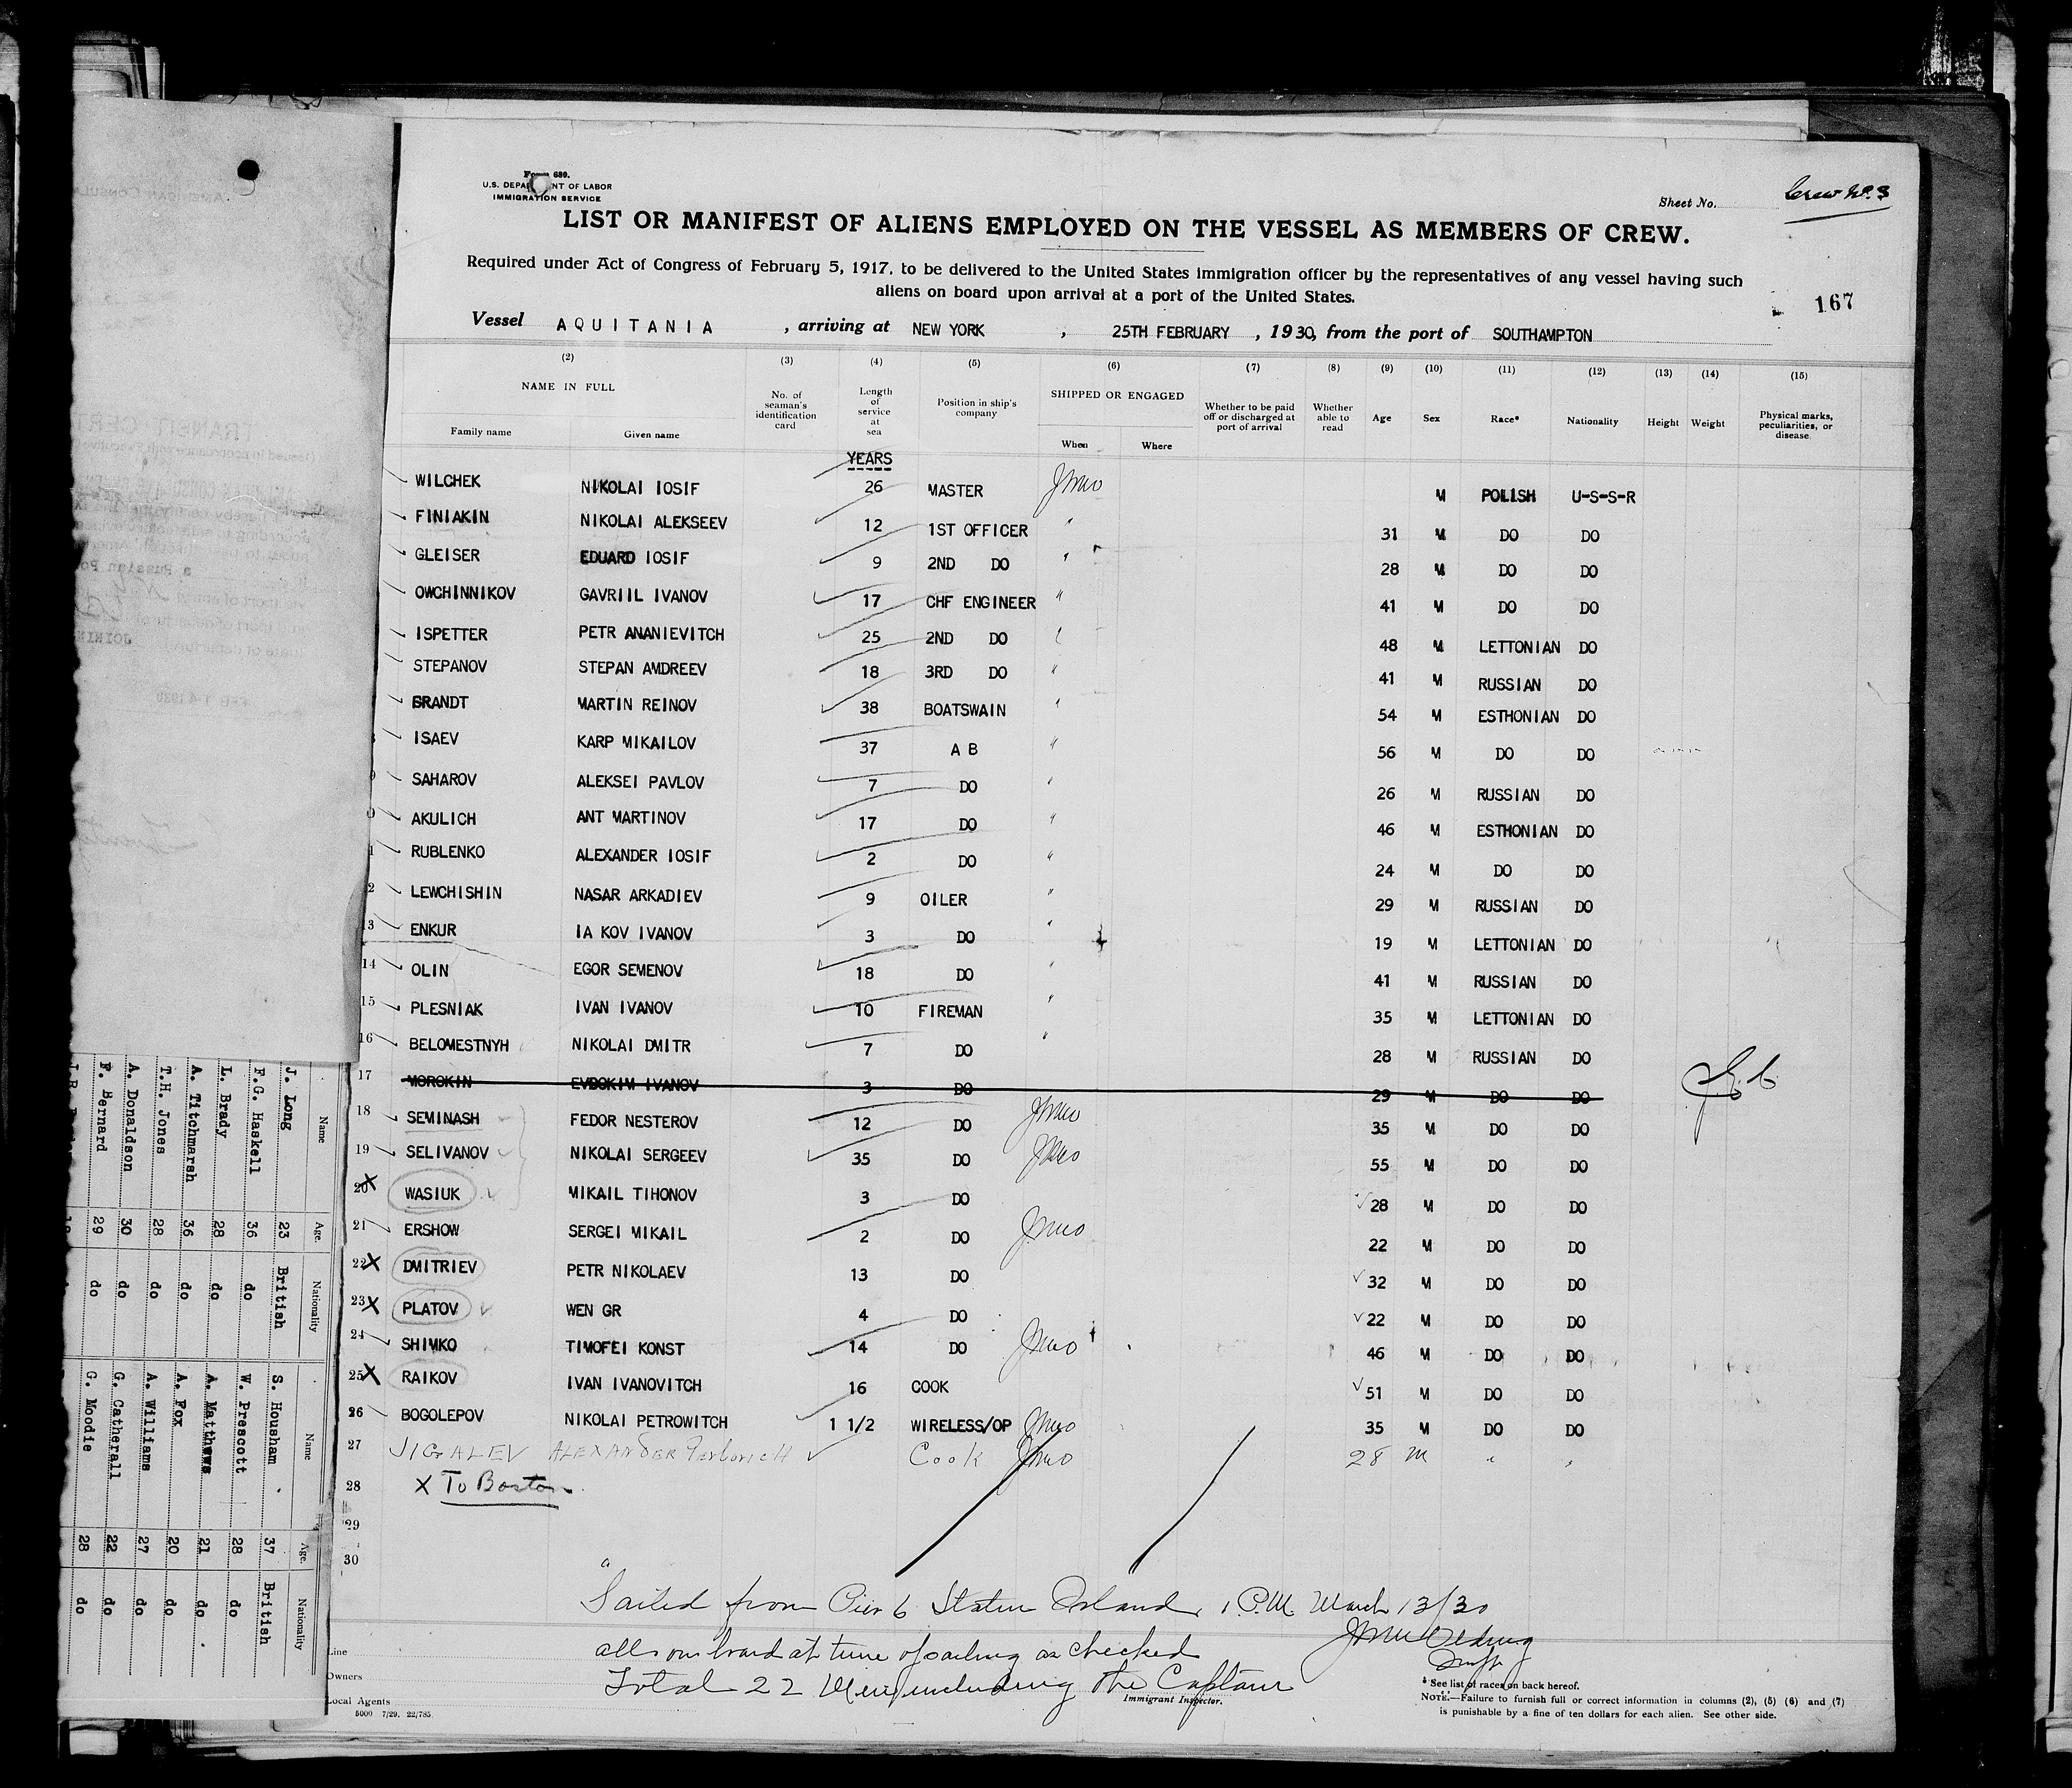 Form 689.
U.S. DEPARTMENT OF LABOR
IMMIGRATION SERVICE
Sheet No. Crew No. 3
LIST OR MANIFEST OF ALIENS EMPLOYED ON THE VESSEL AS MEMBERS OF CREW.
Required under Act of Congress of February 5, 1917, to be delivered to the United States immigration officer by the representatives of any vessel having such
aliens on board upon arrival at a port of the United States.
167
Vessel AQUITANIA , arriving at NEW YORK , 25TH FEBRUARY , 1930, from the port of SOUTHAMPTON
(2) (3) (4) (5) (6) (7) (8) (9) (10) (11) (12) (13) (14) (15)
NAME IN FULL No. of seaman's identification card Length of service at sea Position in ship's company SHIPPED OR ENGAGED Whether to be paid off or discharged at port of arrival Whether able to read Age Sex Race* Nationality Height Weight Physical marks, peculiarities, or disease
Family name Given name When Where
YEARS
WILCHEK NIKOLAI IOSIF 26 MASTER M POLISH U-S-S-R
FINIAKIN NIKOLAI ALEKSEEV 12 1ST OFFICER " 31 M DO DO
GLEISER EDUARD IOSIF 9 2ND DO " 28 M DO DO
OWCHINNIKOV GAVRIIL IVANOV 17 CHF ENGINEER " 41 M DO DO
ISPETTER PETR ANANIEVITCH 25 2ND DO " 48 M LETTONIAN DO
STEPANOV STEPAN AMDREEV 18 3RD DO " 41 M RUSSIAN DO
BRANDT MARTIN REINOV 38 BOATSWAIN " 54 M ESTHONIAN DO
ISAEV KARP MIKAILOV 37 A B " 56 M DO DO
SAHAROV ALEKSEI PAVLOV 7 DO " 26 M RUSSIAN DO
AKULICH ANT MARTINOV 17 DO " 46 M ESTHONIAN DO
RUBLENKO ALEXANDER IOSIF 2 DO " 24 M DO DO
LEWCHISHIN NASAR ARKADIEV 9 OILER " 29 M RUSSIAN DO
13 ENKUR IA KOV IVANOV 3 DO " 19 M LETTONIAN DO
14 OLIN EGOR SEMENOV 18 DO " 41 M RUSSIAN DO
15 PLESNIAK IVAN IVANOV 10 FIREMAN " 35 M LETTONIAN DO
16 BELOMESTNYH NIKOLAI DMITR 7 DO " 28 M RUSSIAN DO
17 MOROKIN EVDOKIM IVANOV 3 DO 29 M DO DO
18 SEMINASH FEDOR NESTEROV 12 DO 35 M DO DO
19 SELIVANOV NIKOLAI SERGEEV 35 DO 55 M DO DO
20 X WASIUK MIKAIL TIHONOV 3 DO 28 M DO DO
21 ERSHOW SERGEI MIKAIL 2 DO 22 M DO DO
22 X DMITRIEV PETR NIKOLAEV 13 DO 32 M DO DO
23 X PLATOV WEN GR 4 DO 22 M DO DO
24 SHIMKO TIMOFEI KONST 14 DO 46 M DO DO
25 X RAIKOV IVAN IVANOVITCH 16 COOK 51 M DO DO
26 BOGOLEPOV NIKOLAI PETROWITCH 1 1/2 WIRELESS/OP 35 M DO DO
27 JIGALEV ALEXANDER Cook 28 m " "
28 X To Boston
29
30
Sailed from Pier 6 Staten Island, 1 P.M. March 13/30
all on board at time of sailing as checked
Total 22 Men including the Captain
Line
Owners
Local Agents
Immigrant Inspector.
5000 7/29. 22/785.
* See list of races on back hereof.
NOTE.—Failure to furnish full or correct information in columns (2), (5) (6) and (7)
is punishable by a fine of ten dollars for each alien. See other side.
Name Age. Nationality Name Age. Nationality
J. Long 23 British S. Housham 37 British
F.G. Haskell 36 do W. Prescott 28 do
L. Brady 28 do A. Matthews 21 do
A. Titchmarsh 36 do A. Fox 20 do
T.H. Jones 28 do A. Williams 27 do
A. Donaldson 30 do G. Catherall 22 do
F. Bernard 29 do G. Moodie 28 do